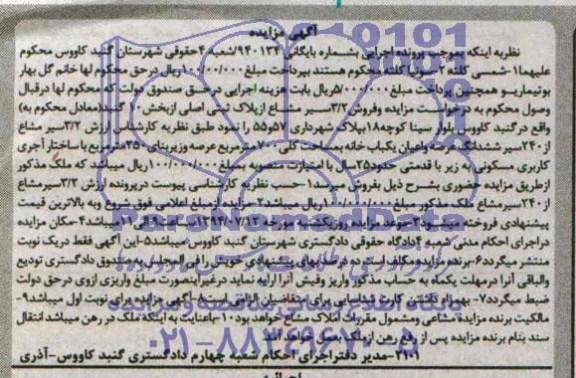 آگهی مزایده
نظریه اینکه بموجب پرونده اجرایی بشماره بایگانی ۹۴۰۱۳۴/شعبه ۴حقوقی شهرستان گنبد کاووس محکوم
علیهما۱-شمسی کلته ۲- کلته محکوم هستند بپرداخت مبلغ ۱۰۰/۰۰۰/۰۰۰ریال درحق محکوم لها خانم گل بهار
بوتیماریـو همچنین پرداخت مبلغ ریال بابت هزینه اجرایی درحق صندوق دولت که محکوم لها درقبال
وصول محکوم به درخواست مزایده وفروش ۳/۲سیر مشاع ازپلاک ثبتی اصلی ازبخش۱۰گنبد(معادل محکوم به)
واقع درگنبد کاووس بلوار سینا کوچه۱۸پلاک شهرداری ۵۷و۵۵ را نمود طبق نظریه کارشناس ارزش ۳/۲ سیر مشاع
از۲۴۰سیر ششدانگ عرصه واعیان یکباب خانه بمساحت کلی ۷۰۰مترمربع عرصه وزیربنای۲۵۰مترمربع با ساختار آجری
کاربری مسکونی به زیر با قدمتی حدود۲۵سال با امتیازت منصوبه بمبلغ۱۰۰/۰۰۰/۰۰۰ریال میباشد که ملک مذکور
ازطریق مزایده حضوری بشـرح ذیل بفروش میرسد۱-حسب نظریه کارشناسی پیوست درپرونده ارزش ۳/۲سیرمشاع
از۲۴۰سیرمشاع ملک مذکور مبلغ ۱۰۰/۰۰۰/۰۰۰ریال میباشد۲-مزایده ازمبلغ اعلامی فوق شروع وبه بالاترین قیمت
پیشنهادی فروخته میشـود۳-موعد مزایده روزیکشنبه مورخه ۱۳۹۴/۰۷/۱۲ ساعت۹الی ۱۱میباشد۴-مکان مزایده
دراجرای احکام مدنی شعبه ۴دادگاه حقوقی دادگستری شهرستان گنبد کاووس میباشد۵-این آگهی فقط دریک نوبت
منتشر میگردد۶-برنده مزایده مکلف است ده درصد بهای پیشنهادی خویش را فی المجلس به صندوق دادگستری تودیع
والباقی آنرا درمهلت یکماه به حساب مذکور واریز وفیش آنرا ارایه نماید درغیراینصورت مبلغ واریزی ازوی درحق دولت
ضبط میگردد۷- بهمراه داشتن کارت شناسایی برای متقاضیان الزامی است۸-آگهی مزایده برای نوبت اول میباشد۹-
مالکیت برنده مزایده مشاعی ومشمول مقررات املاک مشاع خواهد بود۱۰-باعنایت به اینکه ملک در رهن میباشد انتقال
سند بنام برنده مزایده پس از رفع رهن ازملک بعمل خواهد آمد
۲۱۰۱-مدیر دفتراجرای احکام شعبه چهارم دادگستری گنبد کاووس-آذری
ParsNamadData
۰۲۱-۸۸۳۴۹۶۷۰-۵